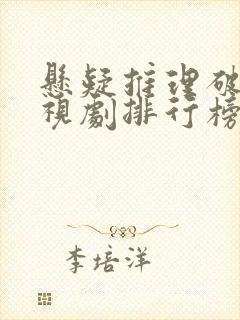 懸疑推理破
視劇排行榜
李培洋